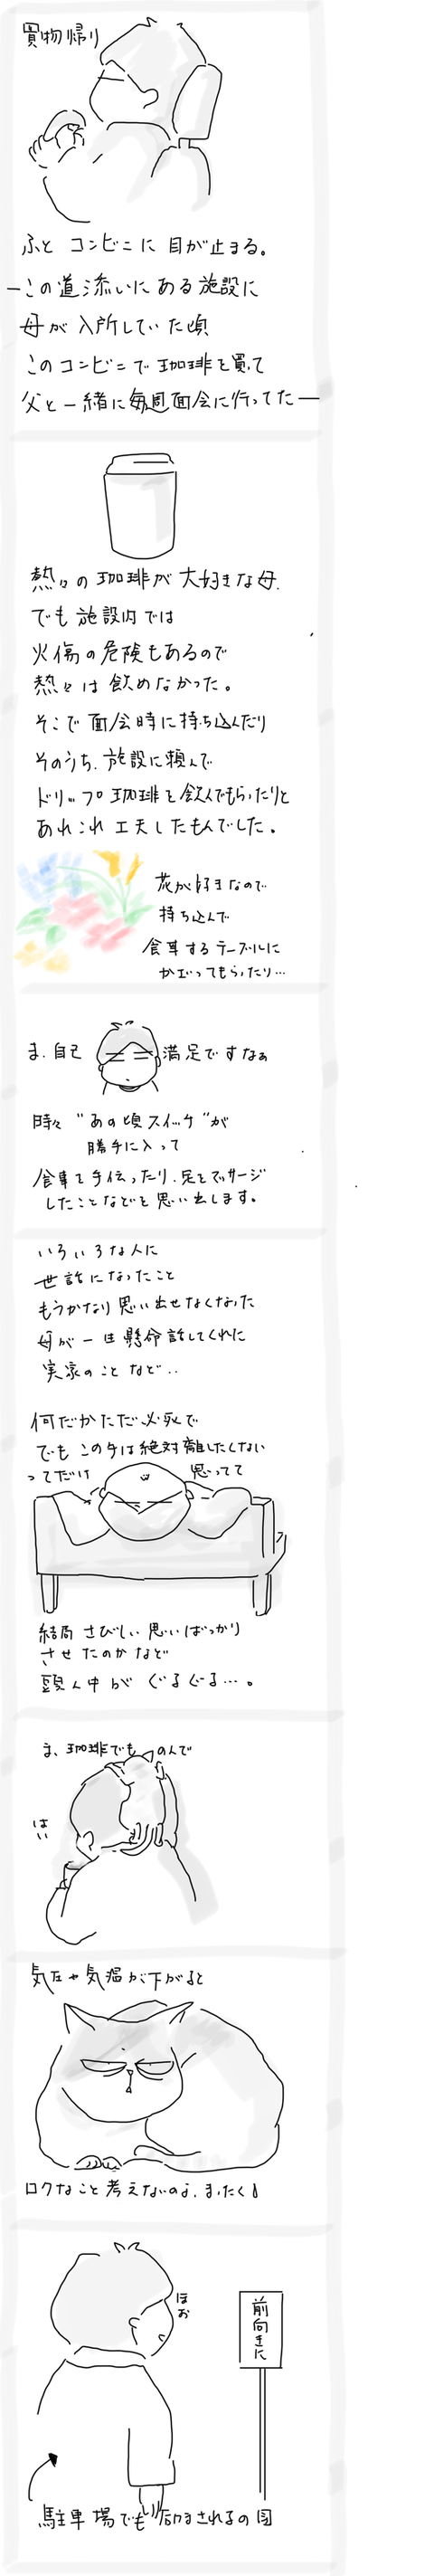 買物帰り
ふと コンビニに 目が止まる。
ーこの道添いに ある施設に
母が入所していた頃
このコンビニで珈琲を買って
父と一緒に毎週面会に行ってたー
熱々の珈琲が大好きな母.
でも施設内では
火傷の危険もあるので
熱々は飲めなかった。
そこで面会時に持ち込んだり
そのうち、施設に頼んで
ドリップ珈琲を飲んでもらったりと
あれこれ工夫したもんでした。
花が好きなので
持ち込んで
食事するテーブルに
かざってもらったり…
ま、自己満足ですなぁ
時々 "あの頃スイッチ"が
勝手に入って
食事を手伝ったり、足をマッサージ
したことなどを思い出します。
いろいろな人に
世話になったこと
もうかなり思い出せなくなった
母が一生懸命話してくれた
実家のことなど‥
何だかただ必死で
でも この手は絶対離したくない
ってだけ 思ってて
結局 さびしい思いばっかり
させたのかなど
頭ん中が ぐるぐる…。
ま、珈琲でも のんで
はい
気圧や気温が下がると
ロクなこと考えないのよ、まったく!
ほお
前向きに
駐車場でも 励まされるの図